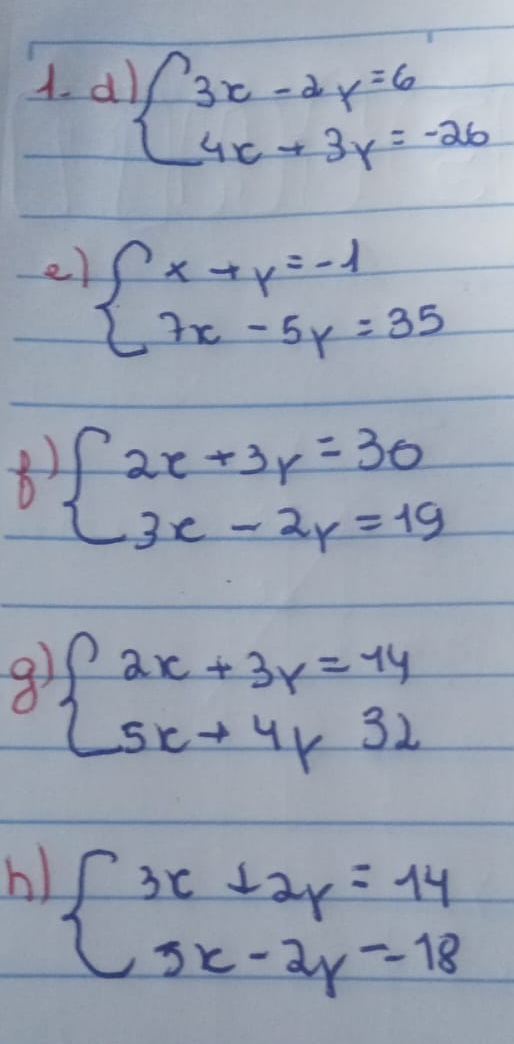 1. d) { 3x - 2y = 6
4x + 3y = -26
e) { x + y = -1
7x - 5y = 35
f) { 2x + 3y = 30
3x - 2y = 19
g) { 2x + 3y = 14
5x + 4y 32
h) { 3x + 2y = 14
5x - 2y = 18